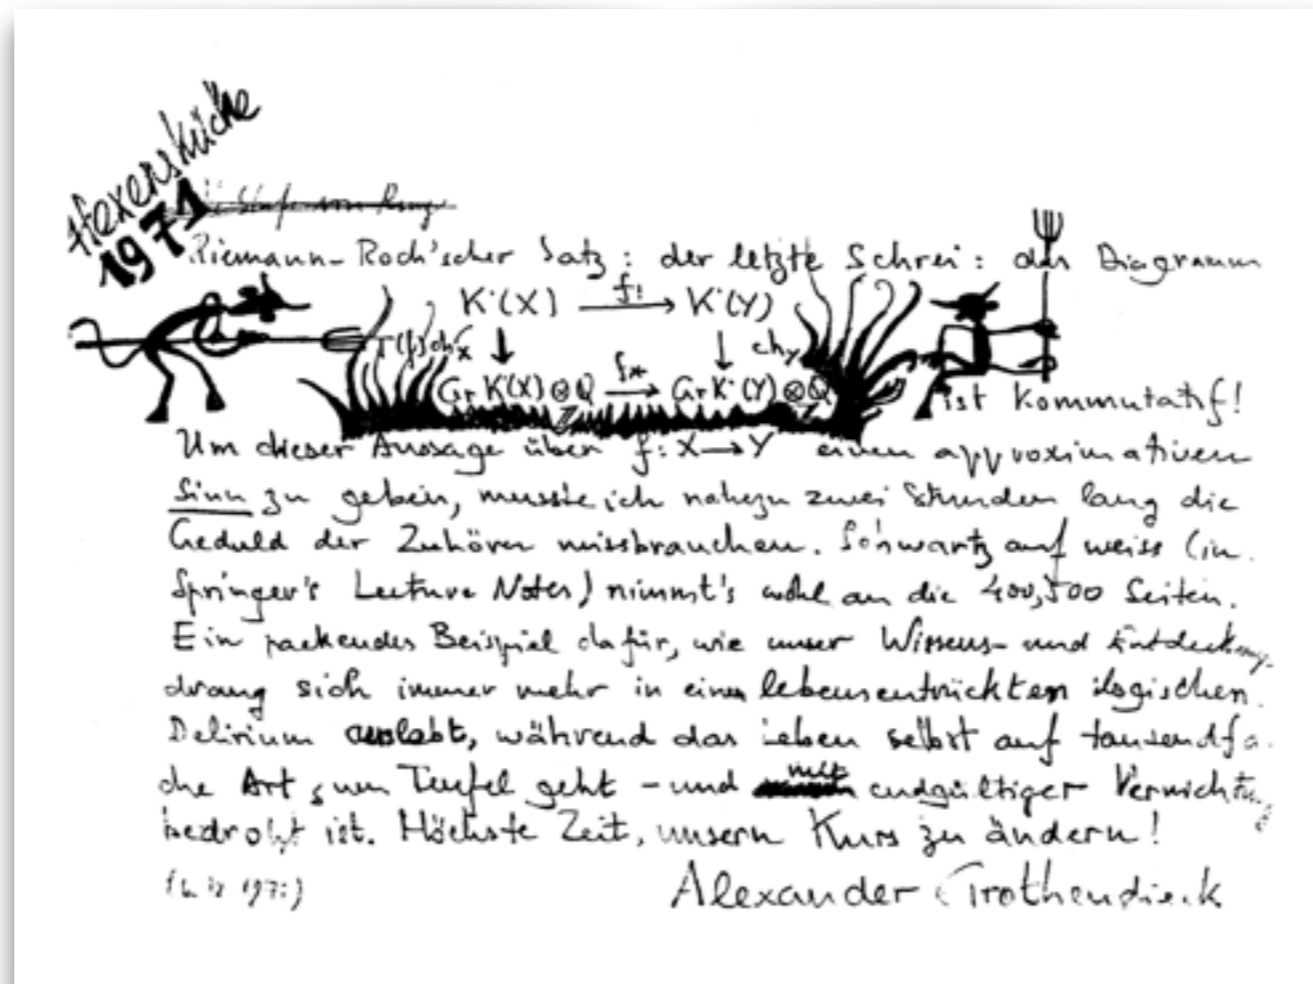 Hexenküche
1971
Riemann-Roch'scher Satz: der letzte Schrei: das Diagramm
K·(X) f! → K·(Y)
T(f)ch_X ↓ ↓ ch_Y
Gr K·(X)⊗Q f* → Gr K·(Y)⊗Q
Z Z
ist kommutatif!
Um dieser Aussage über f: X → Y einen approximativen
Sinn zu geben, musste ich nahezu zwei Stunden lang die
Geduld der Zuhörer missbrauchen. Schwartz auf weiss (in
Springer's Lecture Notes) nimmt's wohl an die 400, 500 Seiten.
Ein packendes Beispiel dafür, wie unser Wissens- und Entdeckungs
drang sich immer mehr in einem lebensentrückten logischen
Delirium auslebt, während das Leben selbst auf tausendfa
che Art zum Teufel geht - und mit endgültiger Vernichtung
bedroht ist. Höchste Zeit, unsern Kurs zu ändern!
Alexander Grothendieck